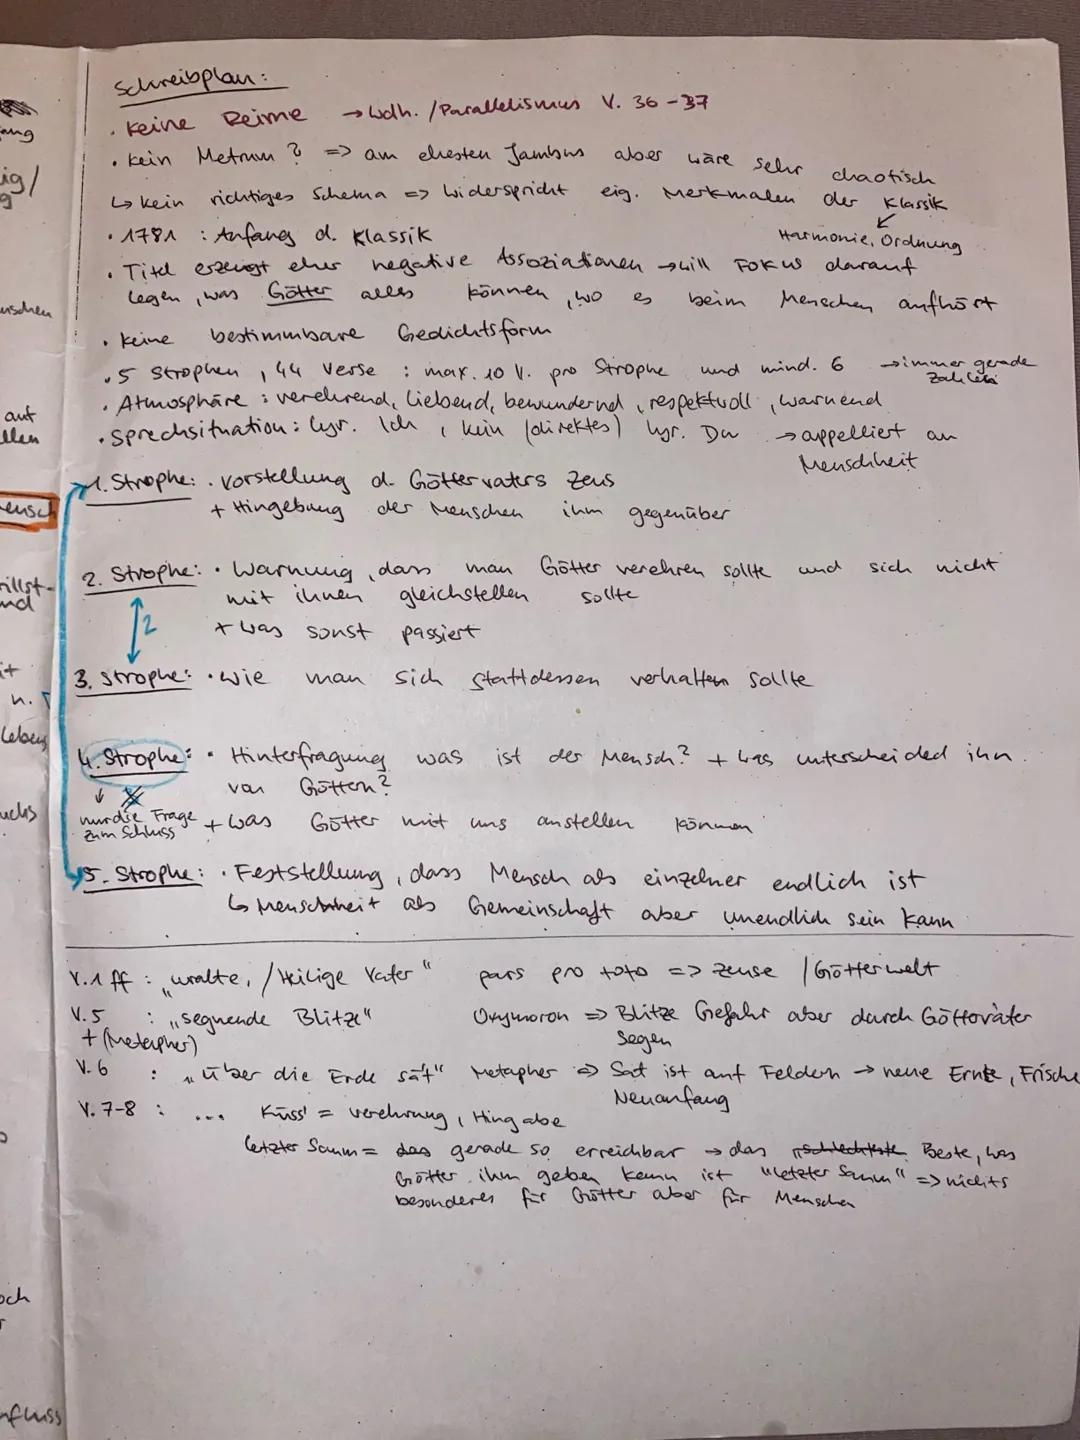 Schreibplan:
• Keine Reime → Wdh. / Parallelismus V. 36-37
• Kein Metrum? => am ehesten Jambus aber wäre sehr chaotisch
↳ kein richtiges Schema => widerspricht eig. Merkmalen der Klassik
Harmonie, Ordnung
• 1781 : Anfang d. Klassik
• Titel erzeugt eher negative Assoziationen → will Fokus darauf
legen, was Götter alles können, wo es beim Menschen aufhört
• keine bestimmbare Gedichtsform
• 5 Strophen, 44 Verse : max. 10 V. pro Strophe und mind. 6 → immer gerade
Zahlen
• Atmosphäre : verehrend, liebend, bewundernd, respektvoll, warnend
• Sprechsituation : lyr. Ich, kein (direktes) lyr. Du → appelliert an
Menschheit
1. Strophe: • Vorstellung d. Göttervaters Zeus
+ Hingebung der Menschen ihm gegenüber
2. Strophe: • Warnung, dass man Götter verehren sollte und sich nicht
mit ihnen gleichstellen sollte
+ was sonst passiert
2
3. Strophe: • wie man sich stattdessen verhalten sollte
4. Strophe: • Hinterfragung was ist der Mensch? + was unterscheided ihn
von Göttern?
nur die Frage
zum Schluss
+ was Götter mit uns anstellen können
5. Strophe: • Feststellung, dass Mensch als einzelner endlich ist
↳ Menschheit als Gemeinschaft aber unendlich sein kann
V.1 ff : „uralte, / Heilige Vater" pars pro toto => Zeuse / Götterwelt
V.5 : „segnende Blitze" Oxymoron => Blitze Gefahr aber durch Göttervater
+ (Metapher) Segen
V.6 : „über die Erde sät" Metapher => Sat ist auf Feldern → neue Ernte, Frische
Neuanfang
V. 7-8 : ... Küss' = verehrung, Hingabe
letzter Saum = das gerade so erreichbar → das schlechteste Beste, was
Götter ihm geben kann ist "letzter Saum" => nichts
besonderes für Götter aber für Menschen
ang
ig/
g
nschen
auf
llen
ensch
rillst-
nd
it
n.
Lebens
uchs
och
r
nfluss